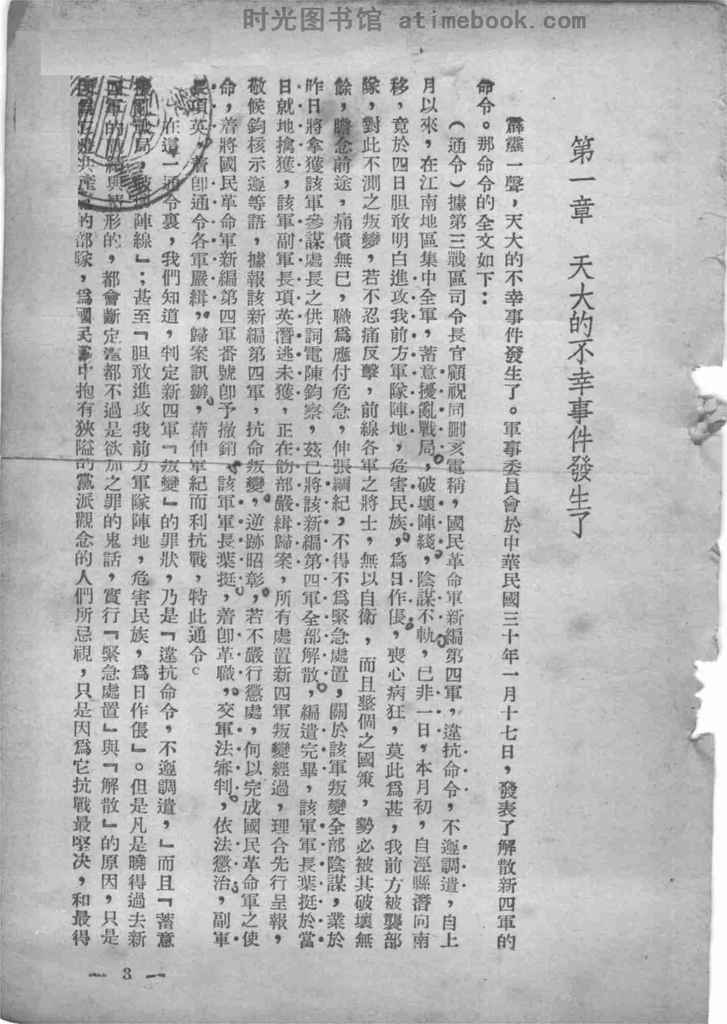 时光图书馆 atimebook.com
第一章 天大的不幸事件發生了
霹靂一聲，天大的不幸事件發生了。軍事委員會於中華民國三十年一月十七日，發表了解散新四軍的
命令。那命令的全文如下：
（通令）據第三戰區司令長官顧祝同刪亥電稱，國民革命軍新編第四軍，違抗命令，不遵調遣，自上
月以來，在江南地區集中全軍，蓄意擾亂戰局，破壞陣綫，陰謀不軌，已非一日，本月初，自涇縣潛向南
移，竟於四日胆敢明白進攻我前方軍隊陣地，危害民族，爲日作倀，喪心病狂，莫此爲甚，我前方被襲部
隊，對此不測之叛變，若不忍痛反擊，前線各軍之將士，無以自衛，而且整個之國策，勢必被其破壞無
餘，瞻念前途，痛憤無已，職爲應付危急，伸張綱紀，不得不爲緊急處置，關於該軍叛變全部陰謀，業於
昨日將拿獲該軍參謀處長之供詞電陳鈞察，茲已將該新編第四軍全部解散，編遣完畢，該軍軍長葉挺於當
日就地擒獲，該軍副軍長項英潛逃未獲，正在飭部嚴緝歸案，所有處置新四軍叛變經過，理合先行呈報，
敬候鈞核示遵等語，據報該新編第四軍，抗命叛變，逆跡昭彰，若不嚴行懲處，何以完成國民革命軍之使
命，着將國民革命軍新編第四軍番號卽予撤銷，該軍軍長葉挺，着卽革職，交軍法審判，依法懲治，副軍
長項英，着卽通令各軍嚴緝，歸案訊辦，藉伸軍紀而利抗戰，特此通令。
在這一通令裏，我們知道，判定新四軍『叛變』的罪狀，乃是『違抗命令，不遵調遣，』而且『蓄意
擾亂戰局，破壞陣線』；甚至『胆敢進攻我前方軍隊陣地，危害民族，爲日作倀』。但是凡是曉得過去新
四軍的 與 形的，都會斷定 都不過是欲加之罪的鬼話，實行『緊急處置』與『解散』的原因，只是
共產 的部隊，爲國民 中抱有狹隘的黨派觀念的人們所忌視，只是因爲它抗戰最堅决，和最得
— 3 —